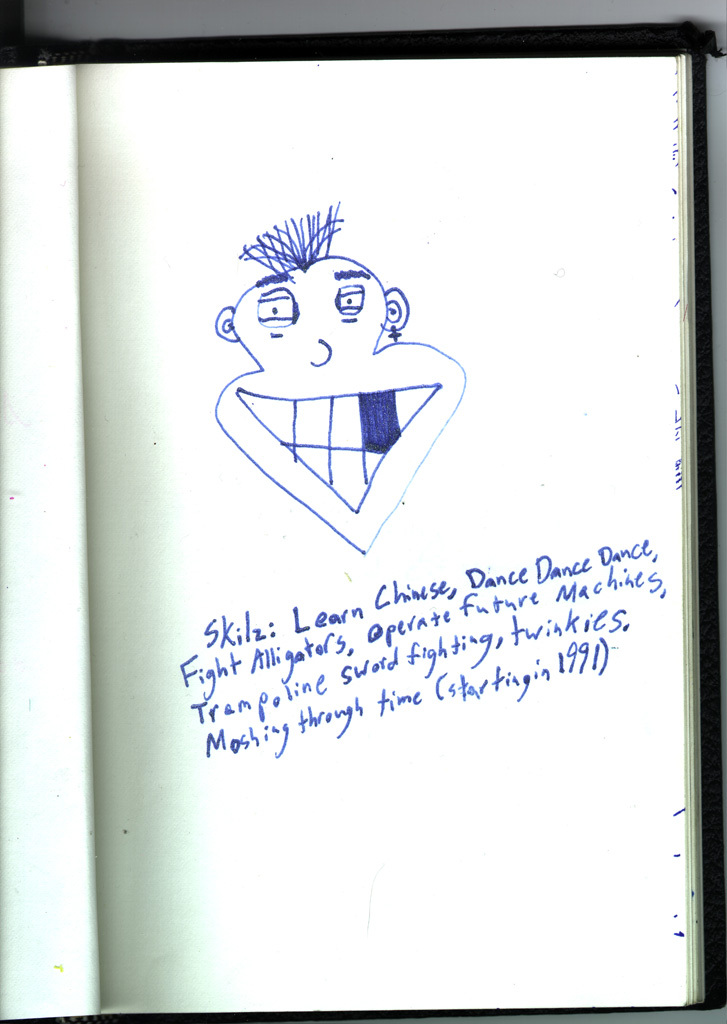 Skilz: Learn Chinese, Dance Dance Dance,
Fight Alligators, operate future Machines,
Trampoline sword fighting, twinkies.
Moshing through time (starting in 1991)